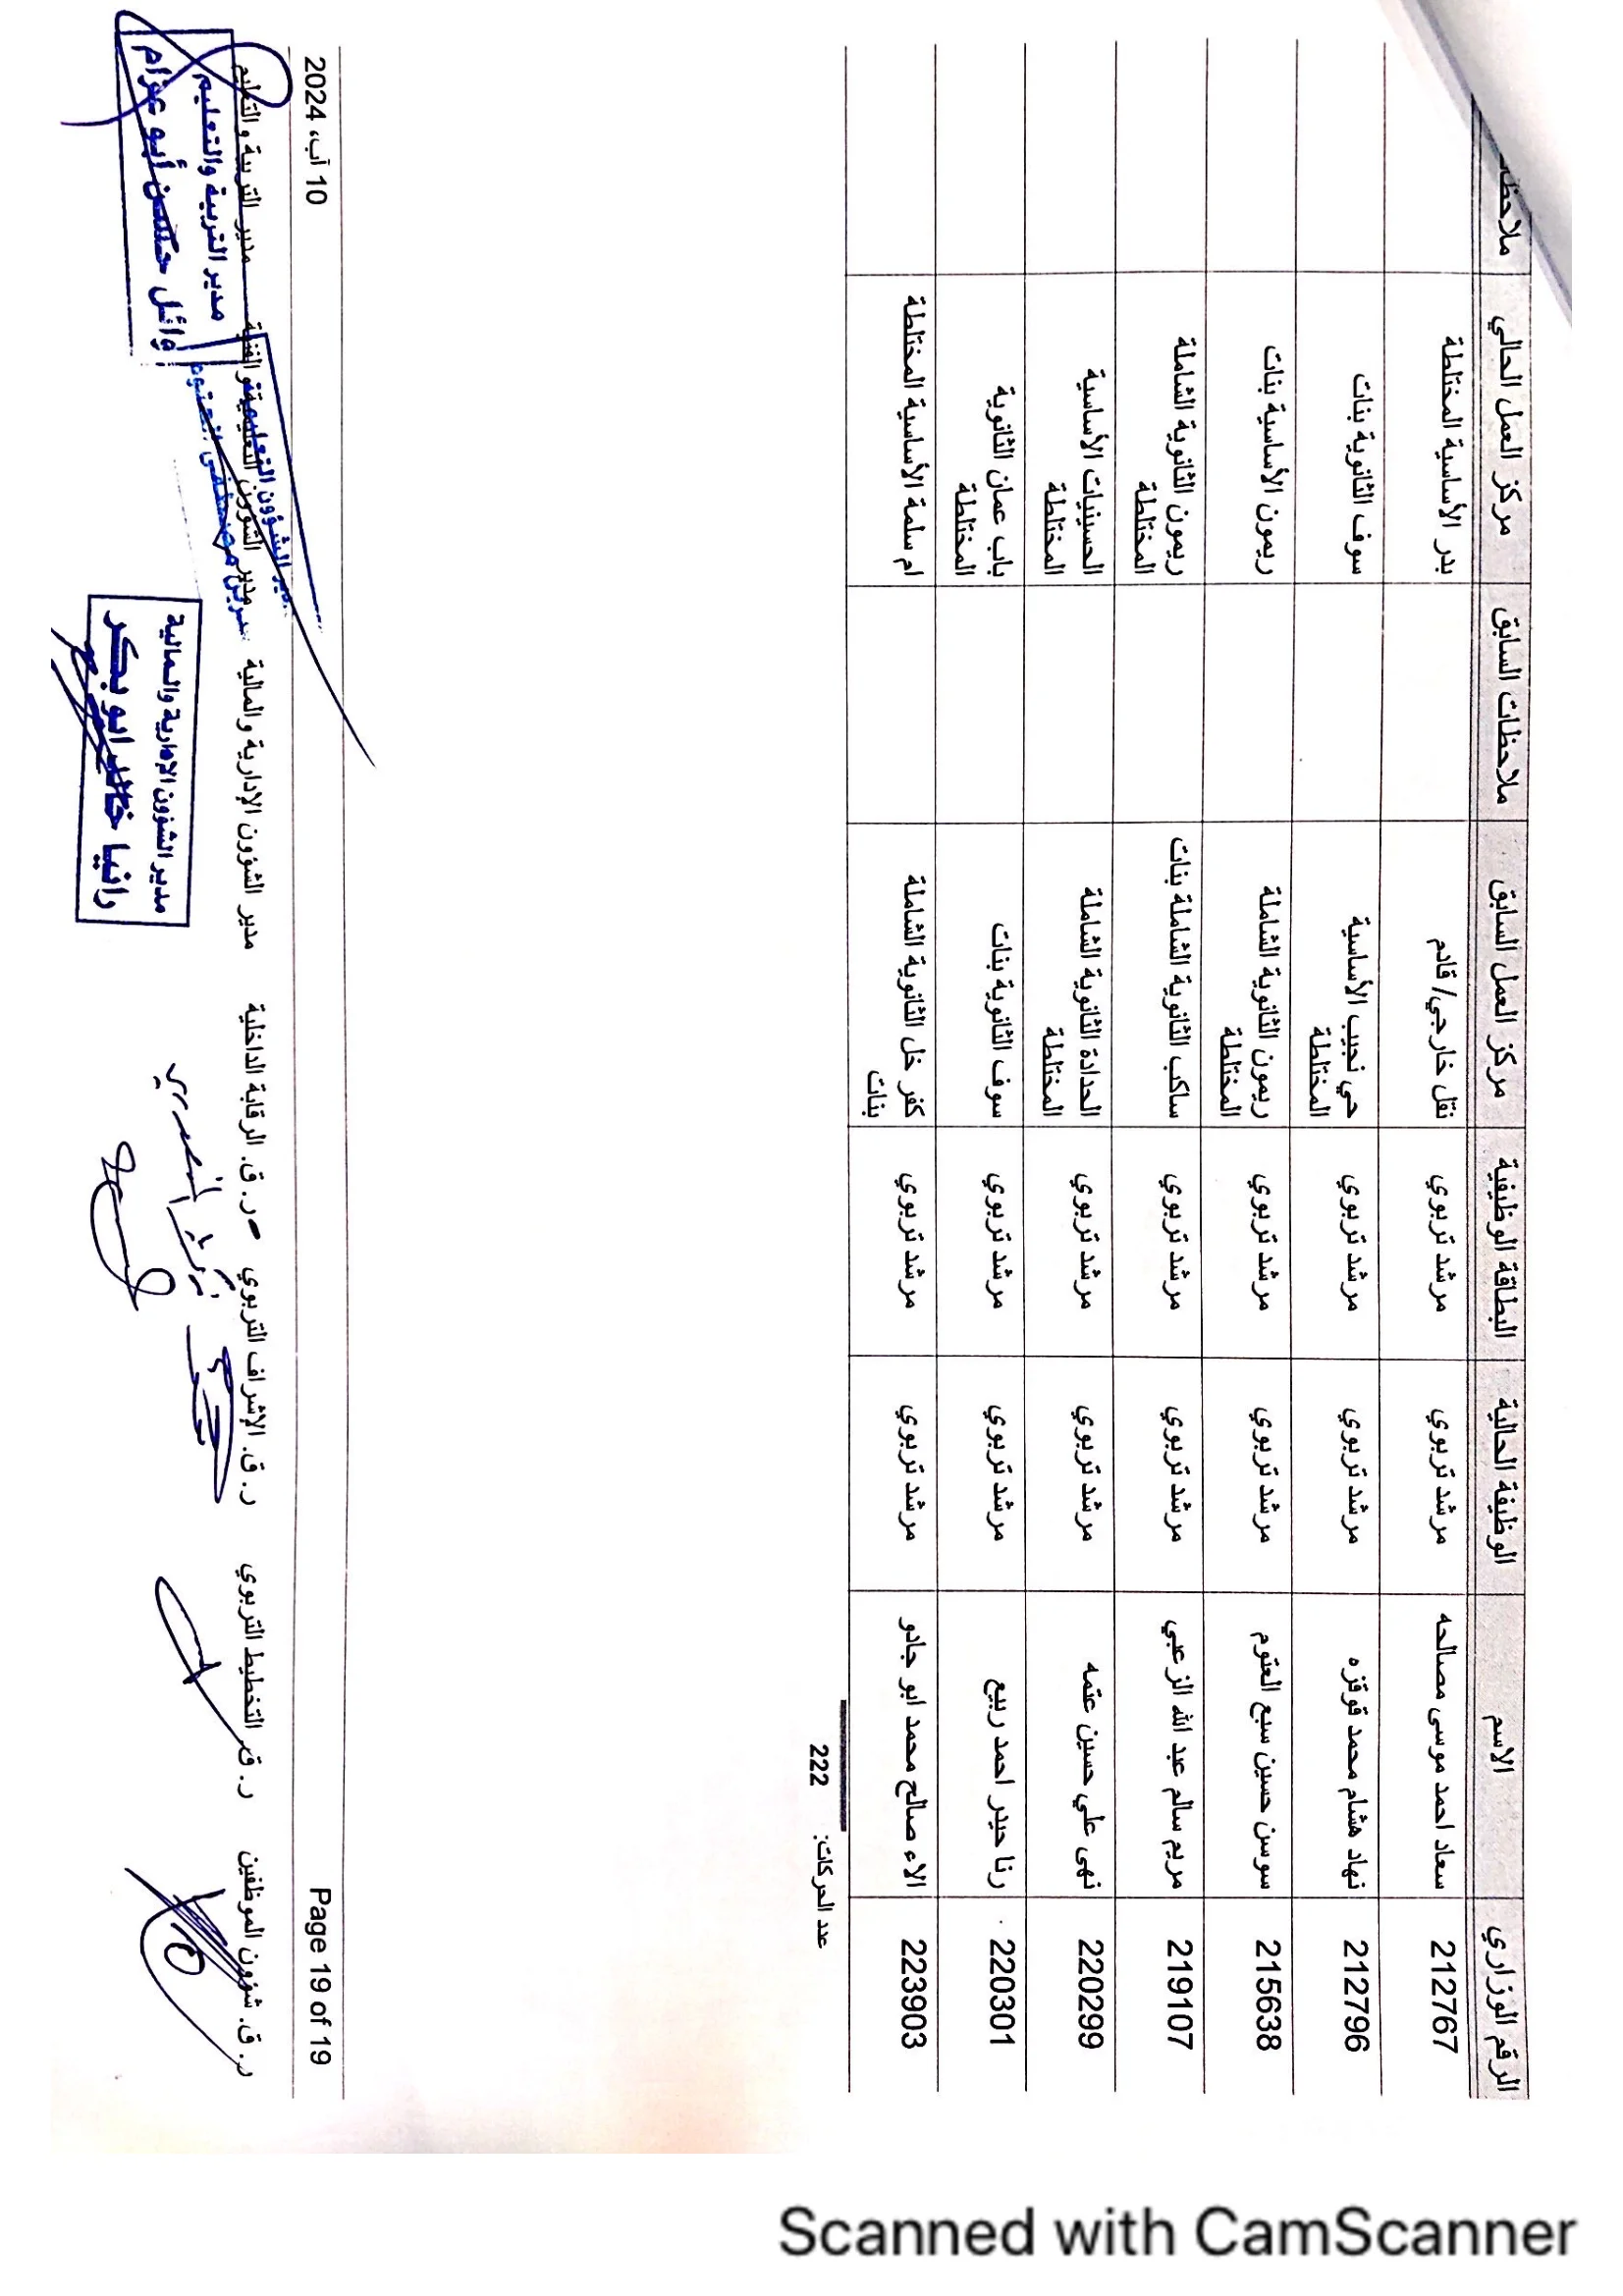 الرقم الوزاري الاسم الوظيفة الحالية البطاقة الوظيفية مركز العمل السابق ملاحظات السابق مركز العمل الحالي
212767 سعاد احمد موسى مصالحه مرشد تربوي مرشد تربوي نقل خارجي/ قادم بدر الأساسية المختلطة
212796 نهاد هشام محمد قوقزه مرشد تربوي مرشد تربوي حي نجيب الأساسية سوف الثانوية بنات
المختلطة
215638 سوسن حسين سبع العتوم مرشد تربوي مرشد تربوي ريمون الثانوية الشاملة ريمون الأساسية بنات
المختلطة
219107 مريم سالم عبد الله الزعبي مرشد تربوي مرشد تربوي ساكب الثانوية الشاملة بنات ريمون الثانوية الشاملة
المختلطة
220299 نهى علي حسين عتمه مرشد تربوي مرشد تربوي الحدادة الثانوية الشاملة الحسينيات الأساسية
المختلطة المختلطة
220301 رنا حيدر احمد ربيع مرشد تربوي مرشد تربوي سوف الثانوية بنات باب عمان الثانوية
المختلطة
223903 الاء صالح محمد ابو جادو مرشد تربوي مرشد تربوي كفر خل الثانوية الشاملة ام سلمة الأساسية المختلطة
بنات
عدد الحركات: 222
Page 19 of 19 10 آب، 2024
ر. ق. شؤون الموظفين ر. ق. التخطيط التربوي ر. ق. الإشراف التربوي ر. ق. الرقابة الداخلية مدير الشؤون الإدارية والمالية مدير الشؤون التعليمية والفنية مدير التربية والتعليم
مدير الشؤون الإدارية والمالية
رانيا خالد ابو بكر
مدير التربية والتعليم
وائل حسن أبو عزام
Scanned with CamScanner